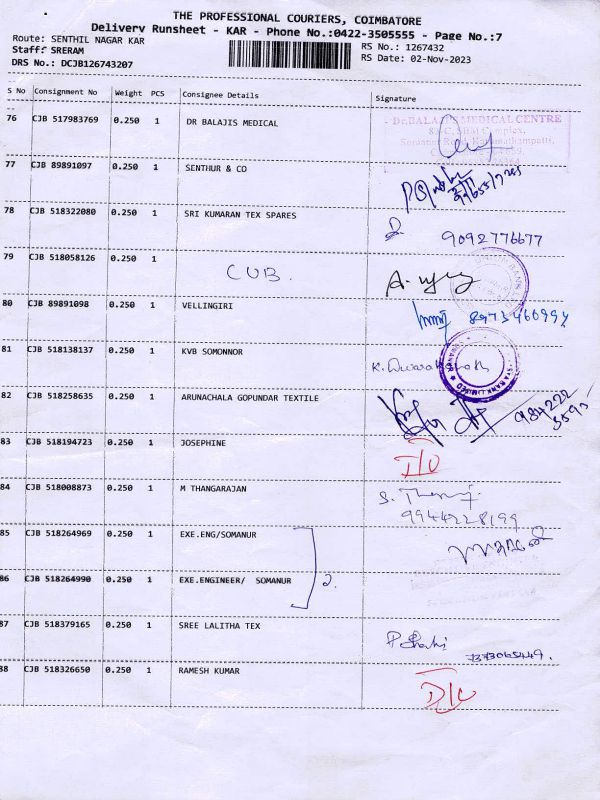 THE PROFESSIONAL COURIERS, COIMBATORE
Delivery Runsheet - KAR - Phone No.:0422-3505555 - Page No.:7
Route: SENTHIL NAGAR KAR
RS No.: 1267432
Staff: SRERAM
RS Date: 02-Nov-2023
DRS No.: DCJB126743207
S No Consignment No Weight PCS Consignee Details Signature
76 CJB 517983769 0.250 1 DR BALAJIS MEDICAL
Dr.BALAJI'S MEDICAL CENTRE
77 CJB 89891097 0.250 1 SENTHUR & CO
78 CJB 518322080 0.250 1 SRI KUMARAN TEX SPARES
9092776677
79 CJB 518058126 0.250 1 CUB.
80 CJB 89891098 0.250 1 VELLINGIRI
81 CJB 518138137 0.250 1 KVB SOMONNOR
82 CJB 518258635 0.250 1 ARUNACHALA GOPUNDAR TEXTILE
83 CJB 518194723 0.250 1 JOSEPHINE
84 CJB 518008873 0.250 1 M THANGARAJAN
9944228199
85 CJB 518264969 0.250 1 EXE.ENG/SOMANUR
86 CJB 518264990 0.250 1 EXE.ENGINEER/ SOMANUR 2.
87 CJB 518379165 0.250 1 SREE LALITHA TEX
88 CJB 518326650 0.250 1 RAMESH KUMAR